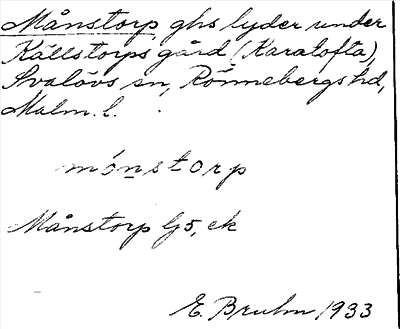 Månstorp ghs lyder under
Källstorps gård (Karalofta),
Svalövs sn, Rönnebergs hd,
Malm. l.
mónstorp
Månstorp Gj5, ek
E. Bruhn 1933